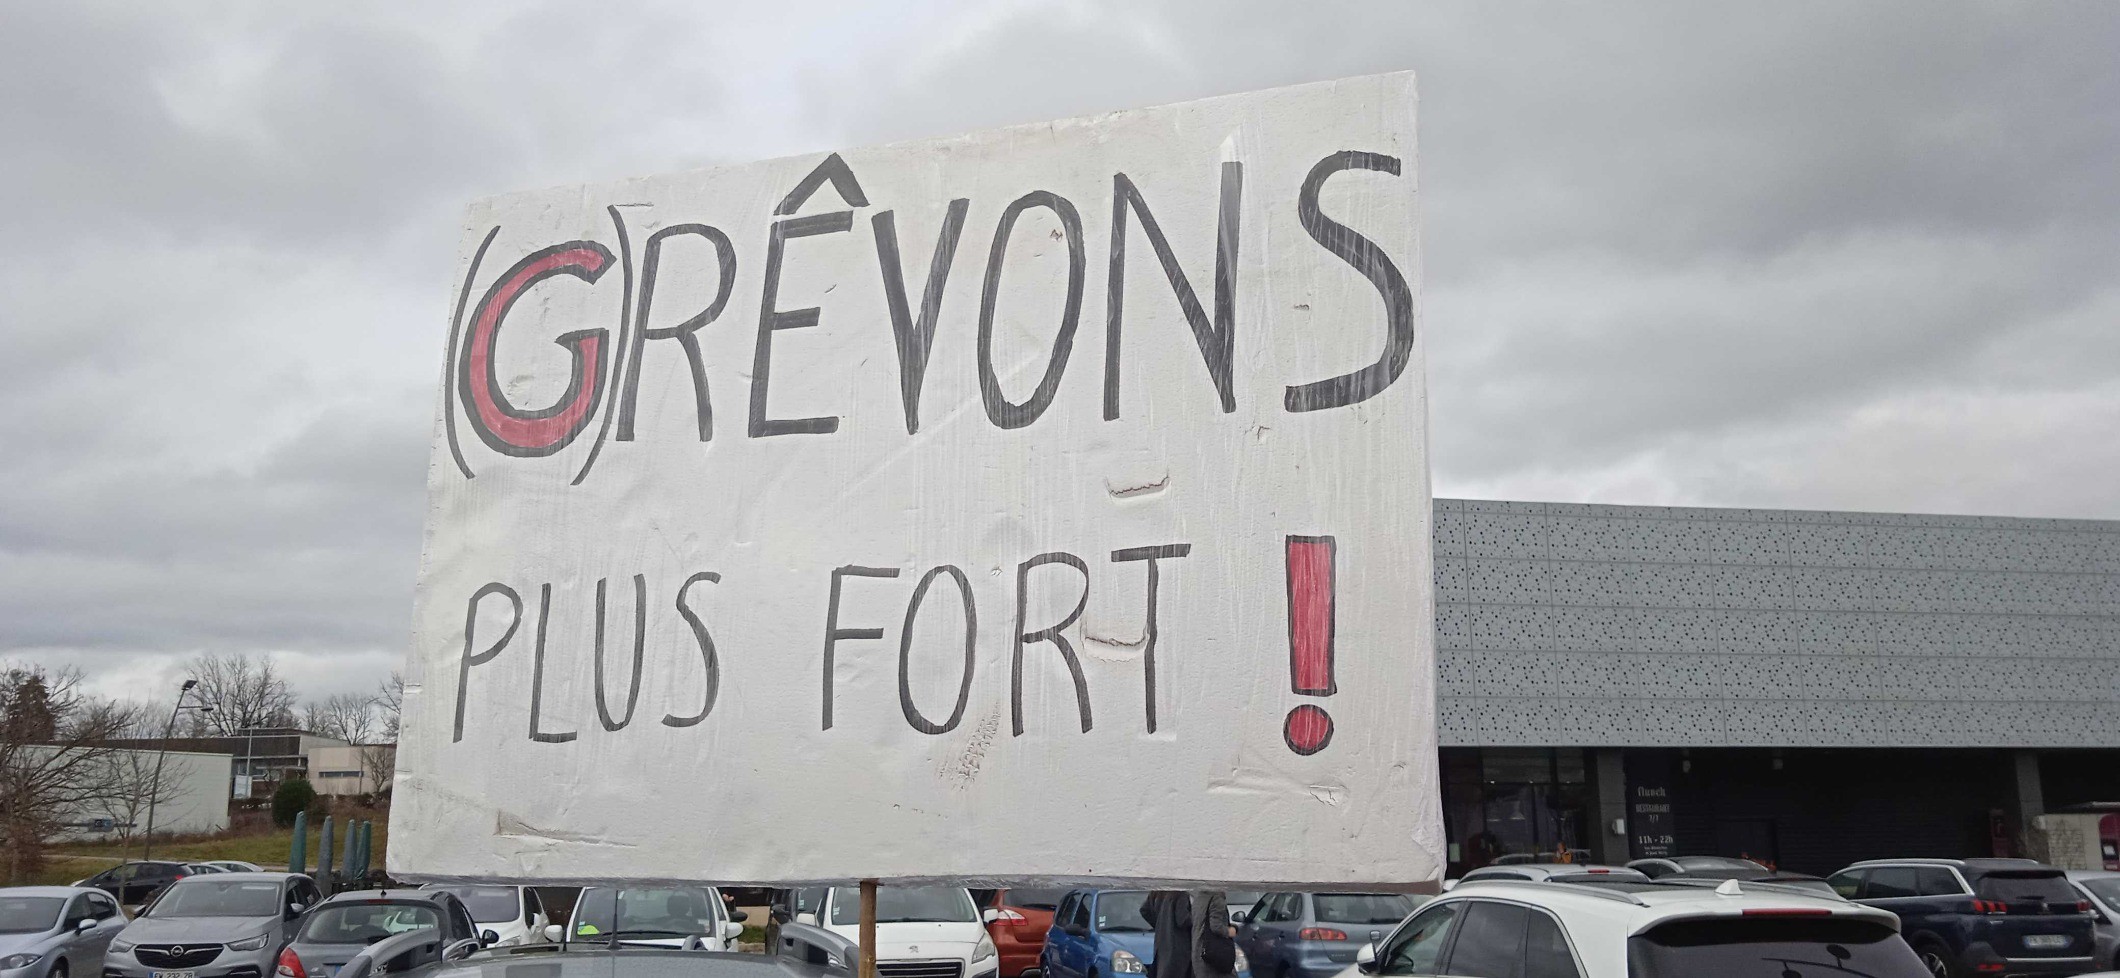 (G)RÊVONS
PLUS FORT !
flunch
RESTAURANT
7/7
11h - 22h